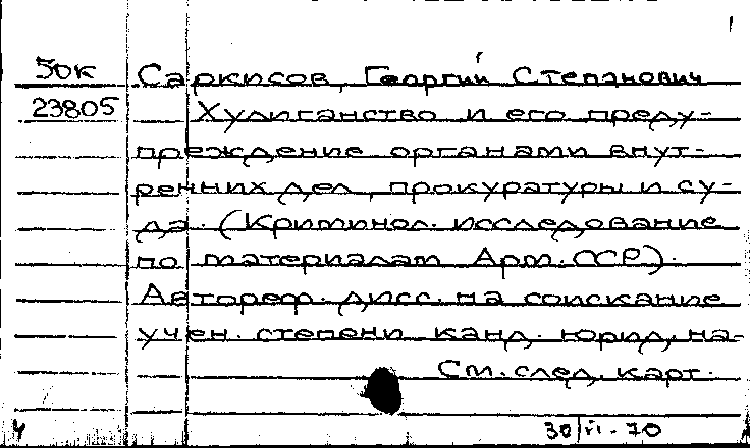 50к Саркисов, Георгий Степанович
23805 Хулиганство и его преду-
преждение органами внут-
ренних дел, прокуратуры и су-
да. (Криминол. исследование
по материалам Арм. ССР).
Автореф. дисс. на соискание
учен. степени канд. юрид. на-
См. след. карт.
30/VI-70